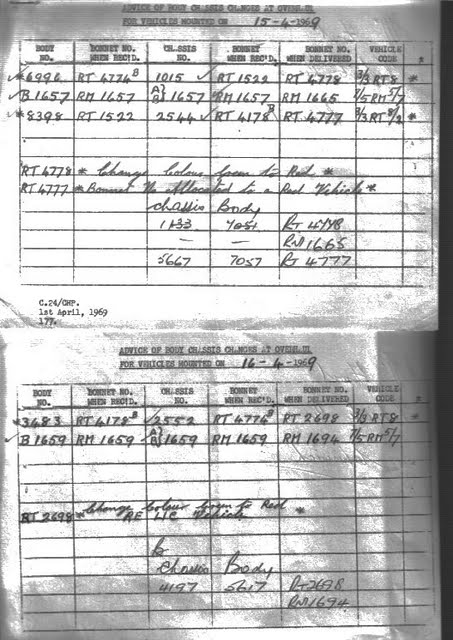 ADVICE OF BODY CHASSIS CHANGES AT OVERHAUL
FOR VEHICLES MOUNTED ON 15-4-1969
BODY NO. BONNET NO. WHEN REC'D. CHASSIS NO. BONNET WHEN REC'D. BONNET NO. WHEN DELIVERED VEHICLE CODE *
* 6996 RT 4774B 1015 ✓ RT 1522 RT 4778 3/3 RT8 *
✓ B 1657 RM 1657 A} B} 1657 RM 1657 RM 1665 7/5 RM 5/7
* 8398 RT 1522 2544 ✓ RT 4178B RT 4777 3/3 RT 8/2 *
RT 4778 * Change Colour from to Red *
RT 4777 * Bonnet No allocated to a Red Vehicle *
Chassis Body
1133 7051 RT 4778
— — RM 1665
5667 7057 RT 4777
C.24/CHP.
1st April, 1969
177.
ADVICE OF BODY CHASSIS CHANGES AT OVERHAUL
FOR VEHICLES MOUNTED ON 16-4-1969
BODY NO. BONNET NO. WHEN REC'D. CHASSIS NO. BONNET WHEN REC'D. BONNET NO. WHEN DELIVERED VEHICLE CODE *
* 3683 RT 4178B ✓ 2552 RT 4774B RT 2698 3/3 RT8 *
✓ B 1659 RM 1659 A} B} 1659 RM 1659 RM 1694 7/5 RM 5/7
RT 2698 * Change Colour from to Red *
RE LIC Vehicle
Chassis Body
4197 5617 RT 2698
RM 1694